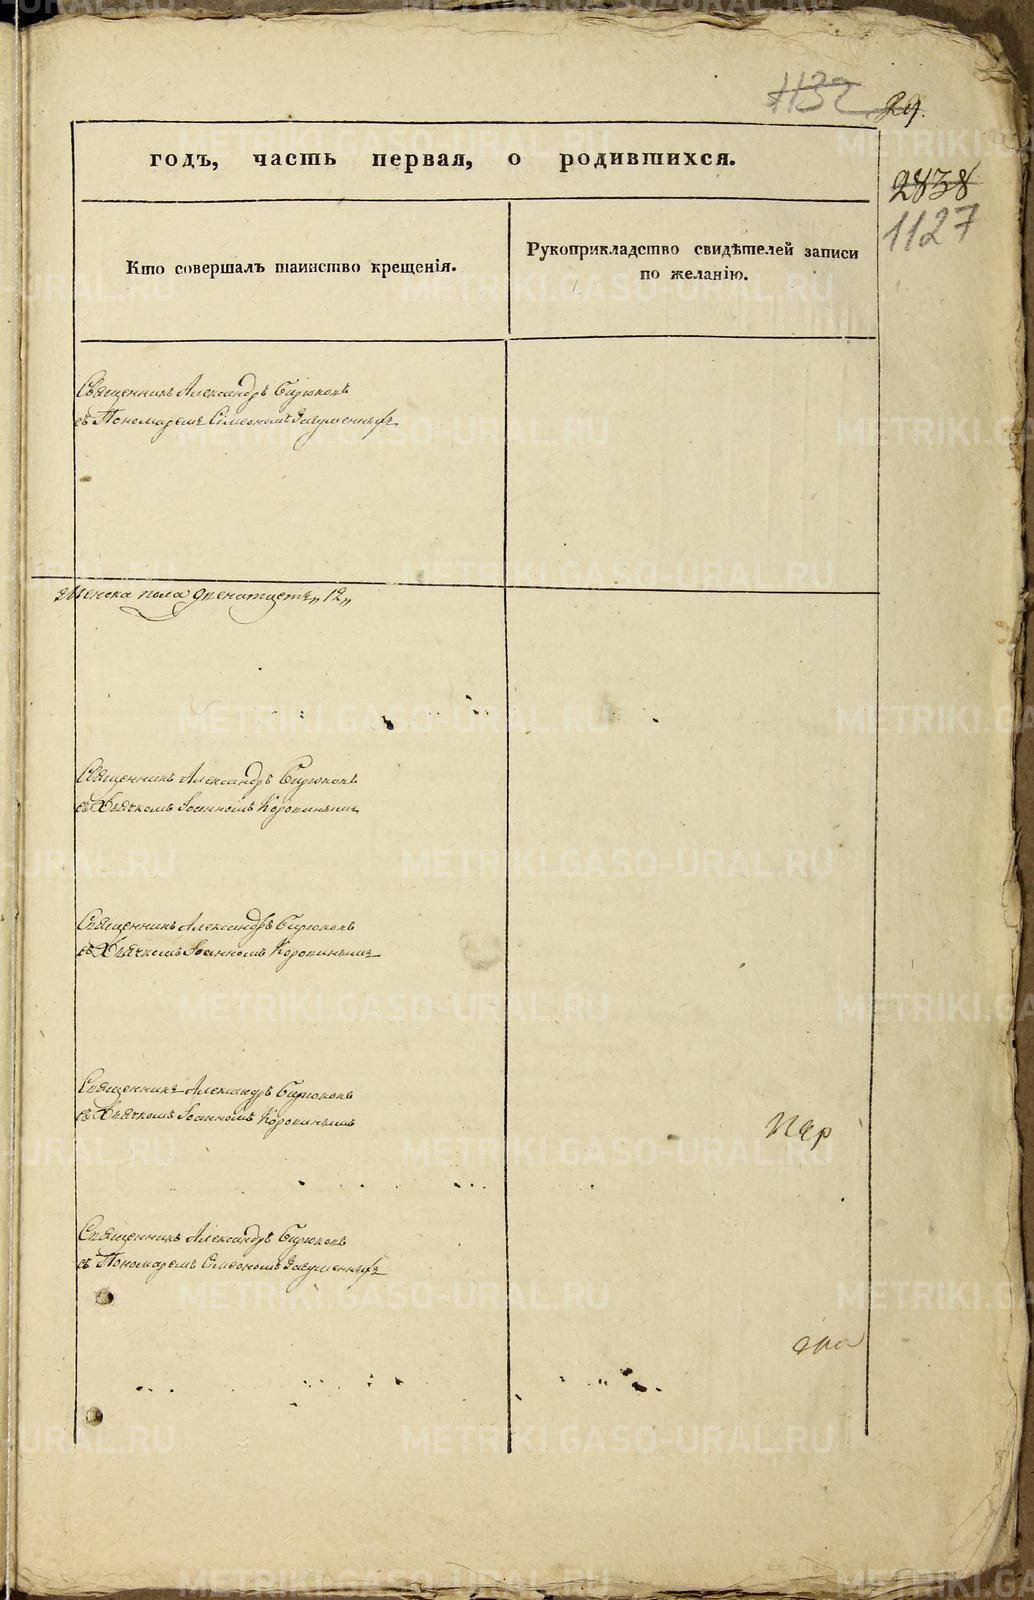 1132
29.
годъ, часть первая, о родившихся.
2838
1127
Кто совершалъ таинство крещенія.
Рукоприкладство свидѣтелей записи
по желанію.
Священникъ Александръ Бирюковъ
съ Пономаремъ Симеономъ Загуменныхъ
женска пола двенатцеть „12„
Священникъ Александръ Бирюковъ
съ Дьячкомъ Іоанномъ Коровинымъ
Священникъ Александръ Бирюковъ
съ Дьячкомъ Іоанномъ Коровинымъ
Священникъ Александръ Бирюковъ
съ Дьячкомъ Іоанномъ Коровинымъ
Священникъ Александръ Бирюковъ
съ Пономаремъ Симеономъ Загуменныхъ
METRIKI.GASO-URAL.RU